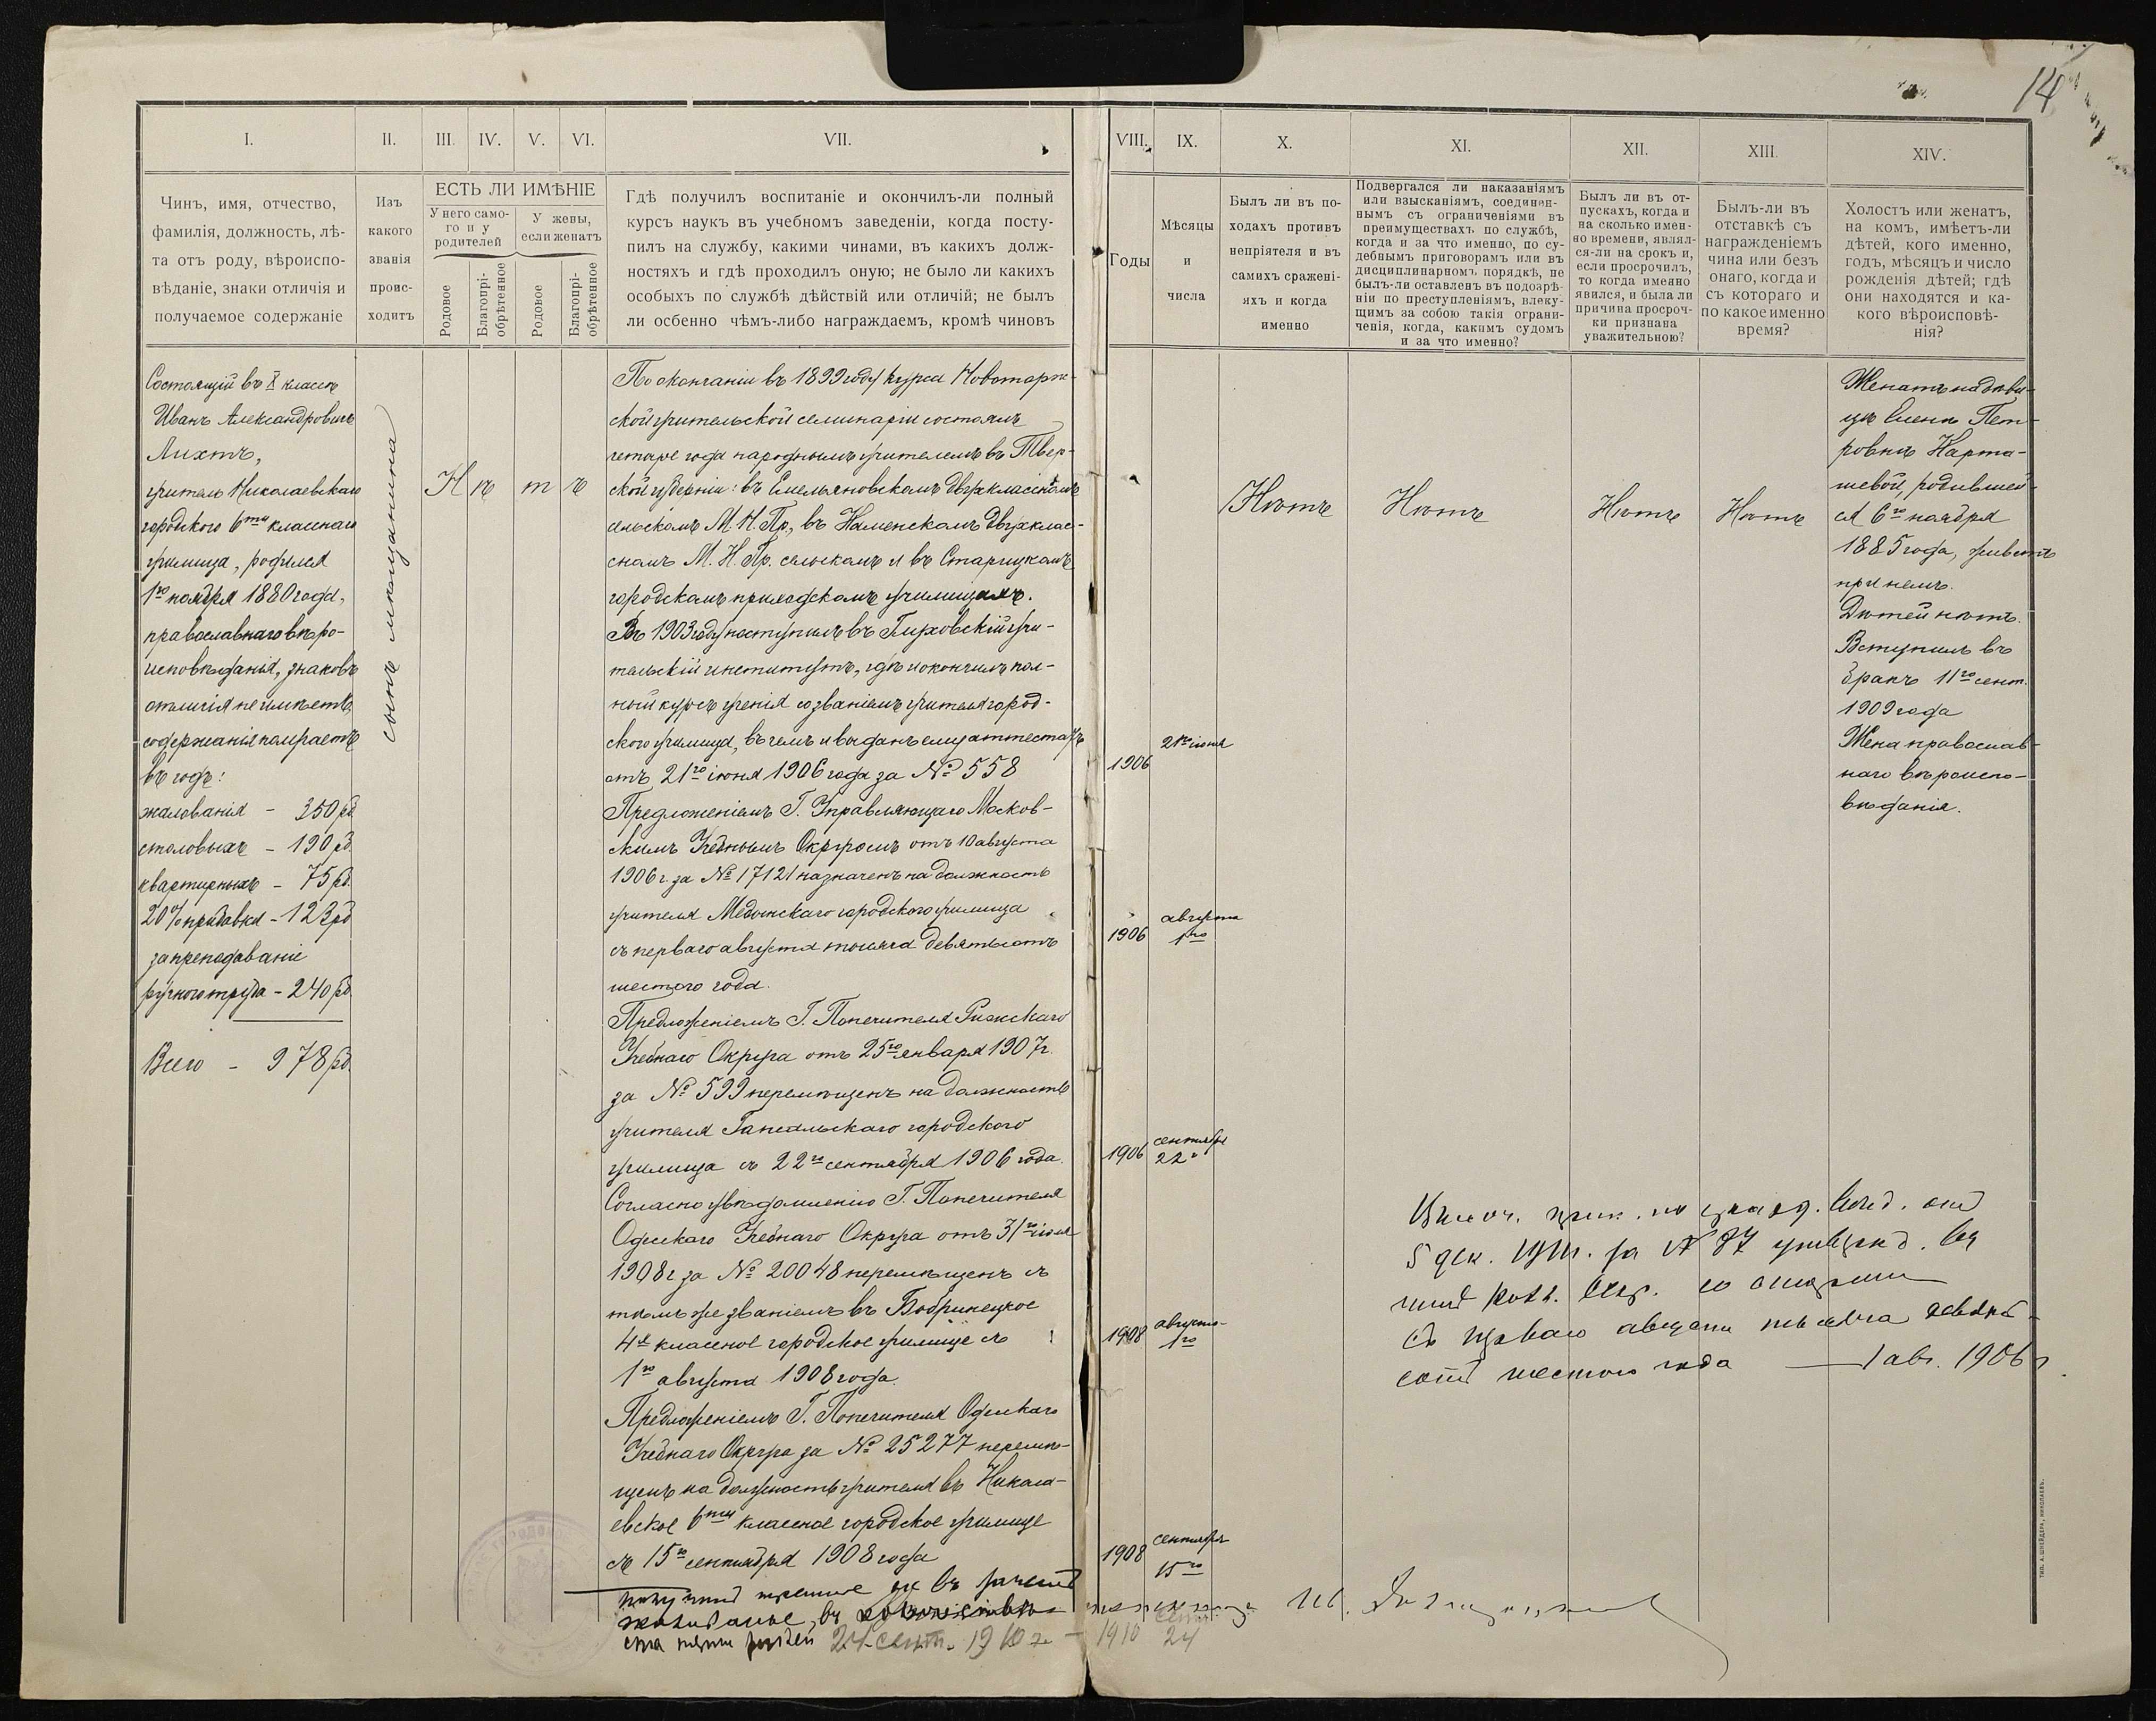 14
I.
II.
III.
IV.
V.
VI.
VII.
VIII.
IX.
X.
XI.
XII.
XIII.
XIV.
Чинъ, имя, отчество,
фамилія, должность, лѣ-
та отъ роду, вѣроиспо-
вѣданіе, знаки отличія и
получаемое содержаніе
Изъ
какого
званія
проис-
ходитъ
ЕСТЬ ЛИ ИМѢНІЕ
У него само-
го и у
родителей
У жены,
если женатъ
Родовое
Благопрі-
обрѣтенное
Родовое
Благопрі-
обрѣтенное
Гдѣ получилъ воспитаніе и окончилъ-ли полный
курсъ наукъ въ учебномъ заведеніи, когда посту-
пилъ на службу, какими чинами, въ какихъ долж-
ностяхъ и гдѣ проходилъ оную; не было ли какихъ
особыхъ по службѣ дѣйствій или отличій; не былъ
ли осбенно чѣмъ-либо награждаемъ, кромѣ чиновъ
Годы
Мѣсяцы
и
числа
Былъ ли въ по-
ходахъ противъ
непріятеля и въ
самихъ сражені-
яхъ и когда
именно
Подвергался ли наказаніямъ
или взысканіямъ, соединен-
нымъ съ ограниченіями въ
преимуществахъ по службѣ,
когда и за что именно, по су-
дебнымъ приговорамъ или въ
дисциплинарномъ порядкѣ, не
былъ-ли оставленъ въ подозрѣ-
ніи по преступленіямъ, влеку-
щимъ за собою такія ограни-
ченія, когда, какимъ судомъ
и за что именно?
Былъ ли въ от-
пускахъ, когда и
на сколько имен-
но времени, являл-
ся-ли на срокъ и,
если просрочилъ,
то когда именно
явился, и была ли
причина просроч-
ки признана
уважительною?
Былъ-ли въ
отставкѣ съ
награжденіемъ
чина или безъ
онаго, когда и
съ котораго и
по какое именно
время?
Холостъ или женатъ,
на комъ, имѣетъ-ли
дѣтей, кого именно,
годъ, мѣсяцъ и число
рожденія дѣтей; гдѣ
они находятся и ка-
кого вѣроисповѣ-
нія?
Состоящій въ X классѣ
Иванъ Александровичъ
Лихтъ,
учитель Николаевскаго
городского 6ти класснаго
училища, родился
1го ноября 1880 года,
православнаго вѣро-
исповѣданія, знаковъ
отличія не имѣетъ,
содержанія получаетъ
въ годъ:
жалованія - 350 рб
столовыхъ - 190 рб
квартирныхъ - 75 рб.
20% прибавка - 123 рб
за преподаваніе
ручного труда - 240 рб.
Всего - 978 рб.
сынъ мѣщанина
Н ѣ т ъ
По окончаніи въ 1899 году курса Новоторж-
ской учительской семинаріи состоялъ
четыре года народнымъ учителемъ въ Твер-
ской губерніи: въ Емельяновскомъ двухклассномъ
сельскомъ М. Н. Пр., въ Каменскомъ двухклас-
сномъ М. Н. Пр. сельскомъ и въ Старицкомъ
городскомъ приходскомъ училищахъ.
Въ 1903 году поступилъ въ Глуховскій учи-
тельскій институтъ, гдѣ и окончилъ пол-
ный курсъ ученія со званіемъ учителя город-
ского училища, въ чемъ и выданъ ему аттестатъ
отъ 21го іюня 1906 года за № 558
Предложеніемъ Г. Управляющаго Москов-
скимъ Учебнымъ Округомъ отъ 10 августа
1906 г. за № 17121 назначенъ на должность
учителя Медынскаго городского училища
съ перваго августа тысяча девятьсотъ
шестого года.
Предложеніемъ Г. Попечителя Рижскаго
Учебнаго Округа отъ 25го января 1907 г.
за № 599 перемѣщенъ на должность
учителя Гапсальскаго городского
училища съ 22го сентября 1906 года.
Согласно увѣдомленію Г. Попечителя
Одесскаго Учебнаго Округа отъ 31го іюля
1908 г за № 20048 перемѣщенъ съ
тѣмъ же званіемъ въ Бобринецкое
4х классное городское училище съ
1го августа 1908 года.
Предложеніемъ Г. Попечителя Одесскаго
Учебнаго Округа за № 25277 перемѣ-
щенъ на должность учителя въ Никола-
евское 6ти классное городское училище
съ 15го сентября 1908 года
жалованье въ
ста рублей 24 сент. 1910 г. - 1910 сент. 24
1906 21го іюня
1906 августа 1го
1906 сентября 22го
1908 августа 1го
1908 сентября 15го
Нѣтъ
Нѣтъ
Нѣтъ
Нѣтъ
Женатъ на дѣви-
цѣ Еленѣ Пет-
ровнѣ Карта-
шевой, родившей-
ся 6го ноября
1885 года, живетъ
при немъ.
Дѣтей нѣтъ.
Вступилъ въ
бракъ 11го сент.
1909 года
Жена православ-
наго вѣроиспо-
вѣданія.
Высоч. прик. по гражд. вѣд. отъ
5 дек. 1911. за № 87 утвержд. въ
чинѣ Колл. Секр. со старшин.
съ перваго августа тысяча девять-
сотъ шестого года — 1 авг. 1906 г.
ТИП. А. ШНЕЙДЕРА, НИКОЛАЕВЪ.